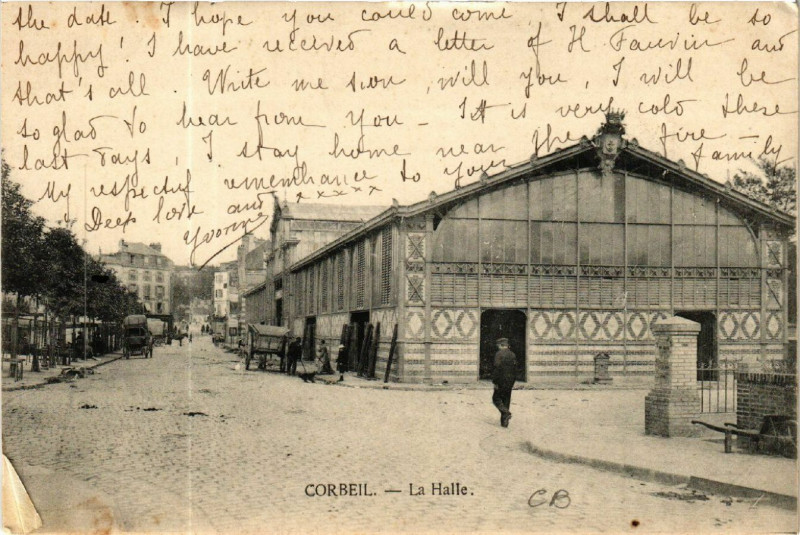 the date. I hope you could come, I shall be so
happy! I have received a letter of H. Fauvin and
that's all. Write me soon, will you, I will be
so glad to hear from you - It is very cold these
last days, I stay home near the fire -
My respectful remembrance to your family
Deep love and x x x x x x
Yvonne
CORBEIL. — La Halle.
CB